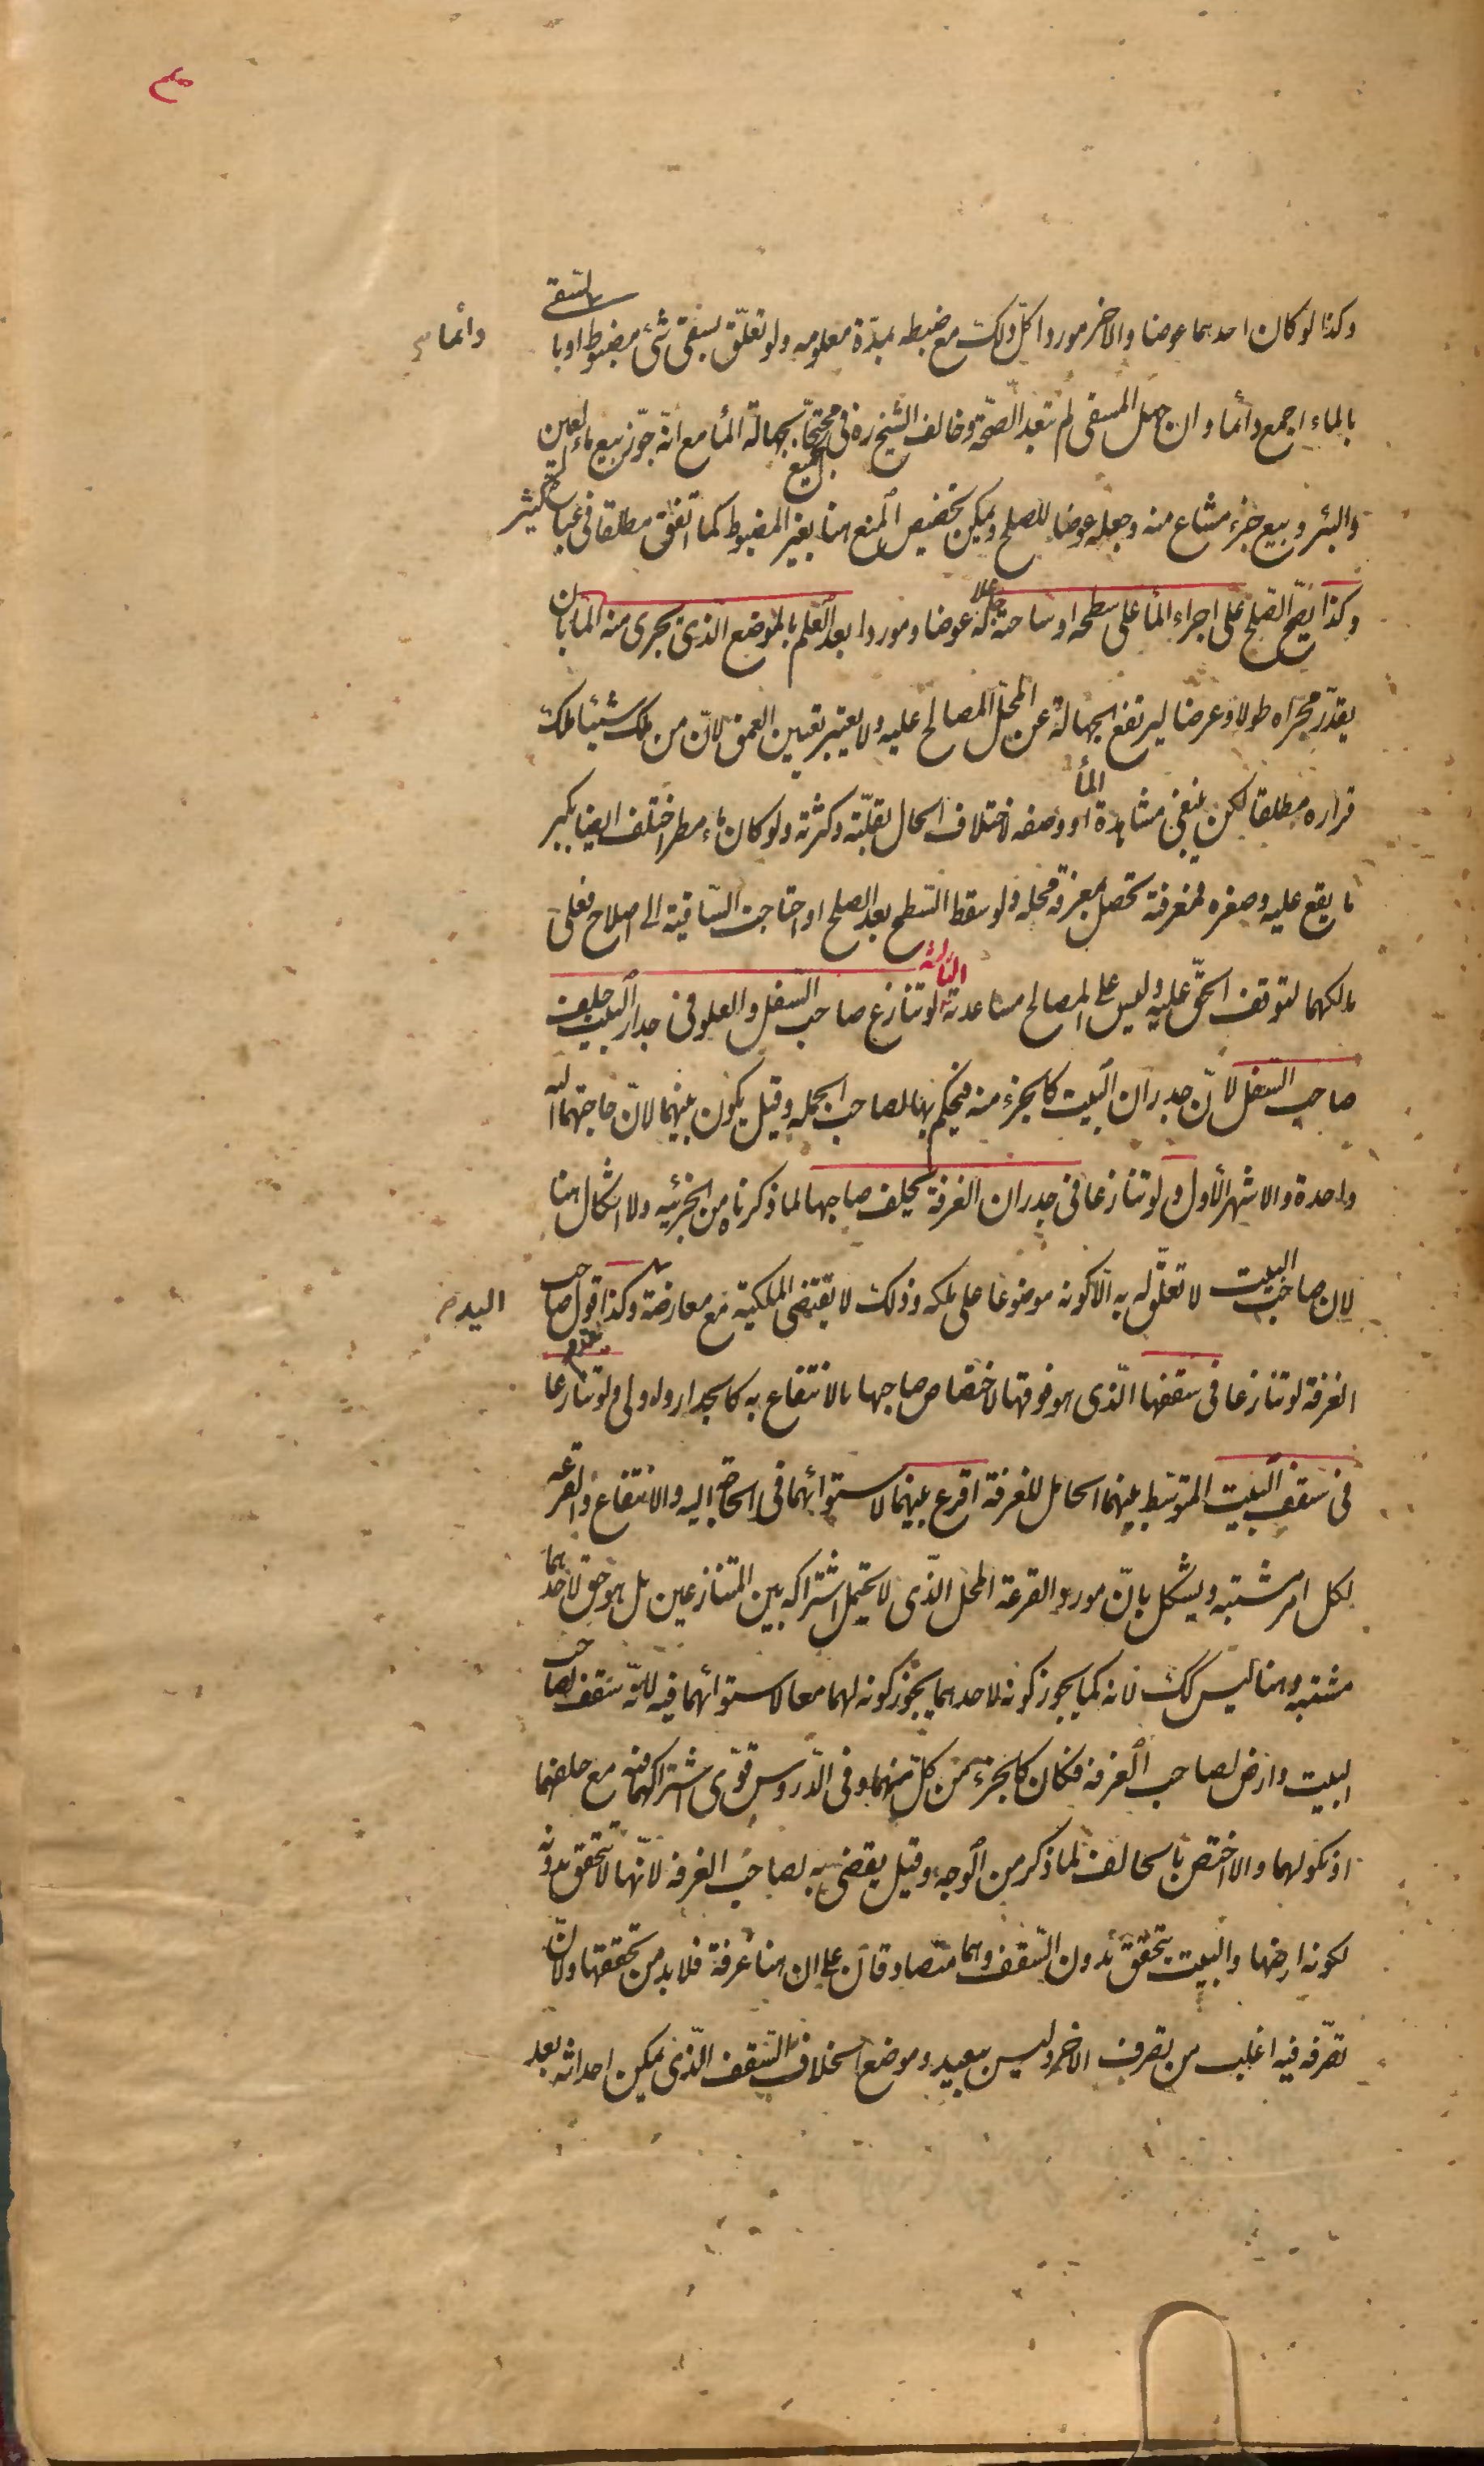 وكذا لو كان احدهما عوضا والاخر موردا كل ذلك مع ضبطه بمدّة معلومه ولو تعلّق بسقى شئ مضبوط او با
لسّقى
دائما
بالماء اجمع دائما وان جهل المسقى لم تبعد الصّحّة وخالف الشيخ ره فى الجميع محتجّا بجهالة المأ مع انّه جوّز بيع ماء العين
والبئر وبيع جزء مشاع منه وجعله عوضا للصلح ويمكن تخصيص المنع هنا بغير المضبوط كما اتفق مطلقا فى عبارة الكثير
وكذا يصحّ الصّلح على اجراء المأ على سطحه او ساحته جعلا له عوضا وموردا بعد العلم بالموضع الذى يجرى منه المأ بان
يقدّر مجراه طولا وعرضا ليرتفع الجهالة عن المحلّ المصالح عليه ولا يعتبر تعيين العمق لانّ من ملك شيئا ملك
قراره مطلقا لكن ينبغى مشاهدة المأ او وصفه لاختلاف الحال بقلّته وكثرته ولو كان ماء مطر اختلف ايضا بكبر
ما يقع عليه وصغره فمعرفته تحصل بمعرفة محله ولو سقط السّطح بعد الصلح او احتاجت السّاقية الى اصلاح فعلى
مالكهما لتوقف الحقّ عليه وليس على المصالح مساعدته الثالثة لو تنازع صاحب السّفل والعلو فى جدار البيت حلف
صاحب السفل لانّ جدران البيت كالجزء منه فيحكم بها لصاحب الجمله وقيل يكون بينهما لانّ حاجتهما اليه
واحدة والاشهر الأول ولو تنازعا فى جدران الغرفة يحلف صاحبها لما ذكرناه من الجزئيه ولا اشكال هنا
لان صاحب البيت لا تعلّق له به الّا كونه موضوعا على ملكه وذلك لا يقتضى الملكية مع معارضة وكذا قول صاحب
اليد
الغرفة لو تنازعا فى سقفها الّذى هو فوقها لاختصاص صاحبها بالانتفاع به كالجدار واولى ولو تنازعا
يقدم
فى سقف البيت المتوسّط بينهما الحامل للغرفة اقرع بينهما لاستوائهما فى الحاجة اليه والانتفاع والقرعه
لكل امر مشتبه ويشكل بانّ مورد القرعة المحل الّذى لا يحتمل اشتراكه بين المتنازعين بل هو حق لاحدهما
مشتبه وهنا ليس كك لانه كما يجوز كونه لاحدهما يجوز كونه لهما معا لاستوائهما فيه لانّه سقف لصاحب
البيت وارض لصاحب الغرفه فكان كالجزء من كلّ منهما وفى الدّروس قوّى اشتراكهما فيه مع حلفهما
او نكولهما والا اختص بالحالف لما ذكر من الوجه وقيل يقضى به لصاحب الغرفه لانّها لا تتحقق بدونه
لكونه ارضها والبيت يتحقق بدون السّقف وهما متصادقان على ان هنا غرفة فلا بد من تحققها ولانّ
تصّرفه فيه اغلب من تصرف الاخر وليس ببعيد وموضع الخلاف السّقف الّذى يمكن احداثه بعد